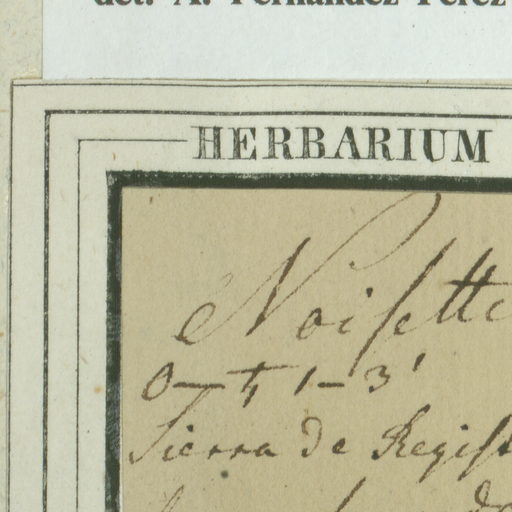 det. A. Fernández Pérez
HERBARIUM
Noisette
0—♄ 1—3'
Sierra de Regist